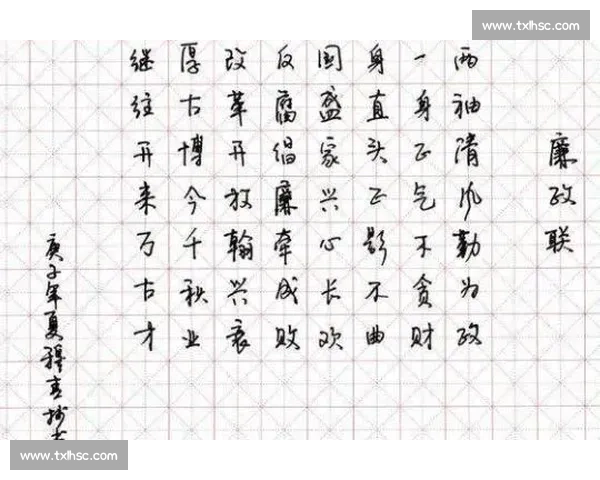 www.txlhsc.com
廉政联
两袖清风勤为政
一身正气不贪财
身直头正影不曲
国盛家兴心长欢
反腐倡廉牵成败
改革开放翰兴衰
厚古博今千秋业
继往开来万古才
庚子年夏
www.txlhsc.com